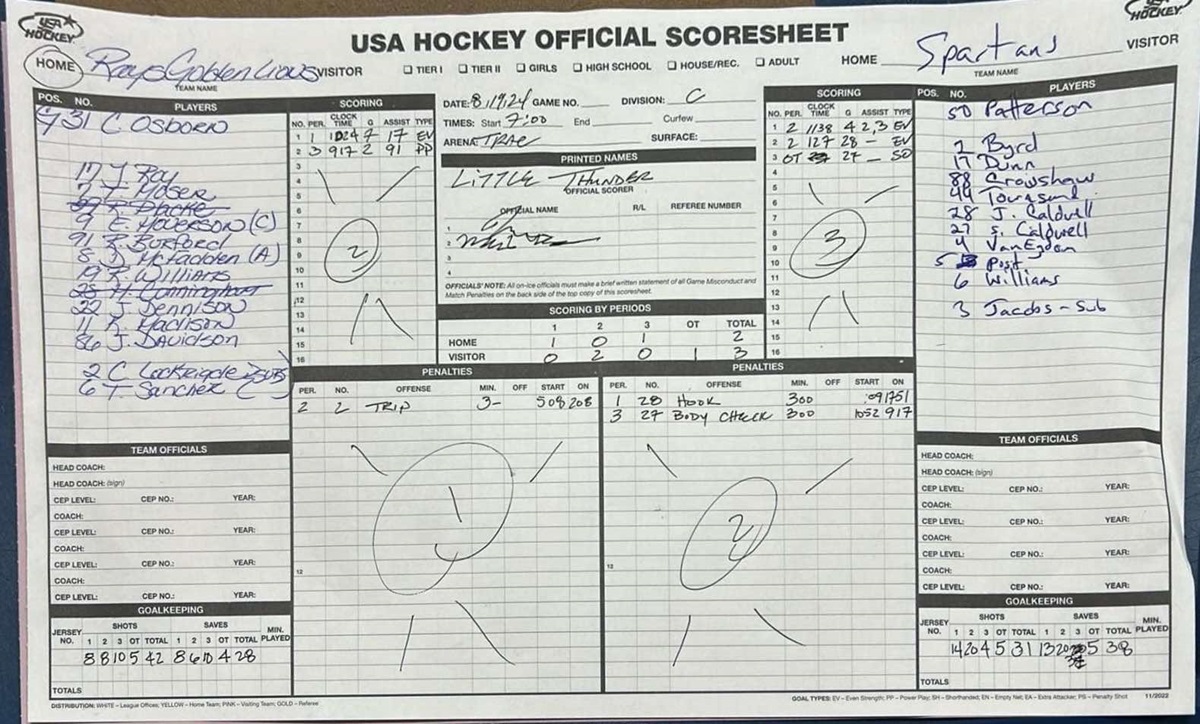 USA HOCKEY
USA HOCKEY OFFICIAL SCORESHEET
USA HOCKEY
HOME Rays Golden Lions VISITOR
TEAM NAME
☐ TIER I ☐ TIER II ☐ GIRLS ☐ HIGH SCHOOL ☐ HOUSE/REC. ☐ ADULT
HOME Spartans VISITOR
TEAM NAME
POS. NO. PLAYERS
G 31 C. OSBORN
17 J. Roy
7 J. MOSER
9 E. HOVERSON (C)
91 R. BURFORD
8 D. McFadden (A)
19 R. WILLIAMS
28 H. Cunningham
22 J. DENNISON
11 K. MADISON
86 J. DAVIDSON
2 C. Lockridge SUBS
6 T. Sanchez
SCORING
NO. PER. CLOCK TIME G ASSIST TYPE
1 1 1024 7 17 EV
2 3 917 2 91 PP
3
4
5
6
7
8
9
10
11
12
13
14
15
16
2
DATE: 8/19/24 GAME NO. DIVISION: C
TIMES: Start 7:00 End Curfew
ARENA: TRAC SURFACE:
PRINTED NAMES
LITTLE THUNDER
OFFICIAL SCORER
OFFICIAL NAME R/L REFEREE NUMBER
1
2
3
4
OFFICIALS' NOTE: All on-ice officials must make a brief written statement of all Game Misconduct and
Match Penalties on the back side of the top copy of this scoresheet.
SCORING BY PERIODS
1 2 3 OT TOTAL
HOME 1 0 1 2
VISITOR 0 2 0 1 3
SCORING
NO. PER. CLOCK TIME G ASSIST TYPE
1 2 1138 4 2,3 EV
2 2 127 28 - EV
3 OT 27 - SO
4
5
6
7
8
9
10
11
12
13
14
15
16
3
POS. NO. PLAYERS
50 Patterson
2 Byrd
17 Dunn
88 Crowshaw
44 Townsend
28 J. Caldwell
27 S. Caldwell
4 VanEgdon
5 Post
6 Williams
3 Jacobs - Sub
PENALTIES
PER. NO. OFFENSE MIN. OFF START ON
2 2 TRIP 3- 508 208
12
1
PENALTIES
PER. NO. OFFENSE MIN. OFF START ON
1 28 HOOK 300 1751
3 27 BODY CHECK 300 1052 917
12
2
TEAM OFFICIALS
HEAD COACH:
HEAD COACH: (sign)
CEP LEVEL: CEP NO.: YEAR:
COACH:
CEP LEVEL: CEP NO.: YEAR:
COACH:
CEP LEVEL: CEP NO.: YEAR:
COACH:
CEP LEVEL: CEP NO.: YEAR:
GOALKEEPING
SHOTS SAVES
JERSEY NO. 1 2 3 OT TOTAL 1 2 3 OT TOTAL MIN. PLAYED
8 8 10 5 42 8 6 10 4 28
TOTALS
TEAM OFFICIALS
HEAD COACH:
HEAD COACH: (sign)
CEP LEVEL: CEP NO.: YEAR:
COACH:
CEP LEVEL: CEP NO.: YEAR:
COACH:
CEP LEVEL: CEP NO.: YEAR:
COACH:
CEP LEVEL: CEP NO.: YEAR:
GOALKEEPING
SHOTS SAVES
JERSEY NO. 1 2 3 OT TOTAL 1 2 3 OT TOTAL MIN. PLAYED
14 20 4 5 31 13 20 5 38
TOTALS
DISTRIBUTION: WHITE – League Offices; YELLOW – Home Team; PINK – Visiting Team; GOLD – Referee
GOAL TYPES: EV – Even Strength; PP – Power Play; SH – Shorthanded; EN – Empty Net; EA – Extra Attacker; PS – Penalty Shot 11/2022